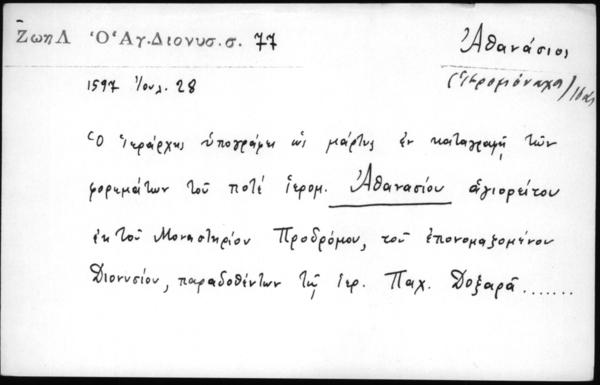 Ζωη Λ Ὁ Ἁγ. Διονυσ. σ. 77
Ἀθανάσιος
(ἱερομόναχος)
1597 Ἰουλ. 28
Ὁ Ἱεράρχης ὑπογράφει ὡς μάρτυς ἐν καταγραφῇ τῶν
φορεμάτων τοῦ ποτέ ἱερομ. Ἀθανασίου ἁγιορείτου
ἐκ τοῦ Μοναστηρίου Προδρόμου, τοῦ ἐπονομαζομένου
Διονυσίου, παραδοθέντων τῷ ἱερ. Παχ. Δοξαρᾶ .......